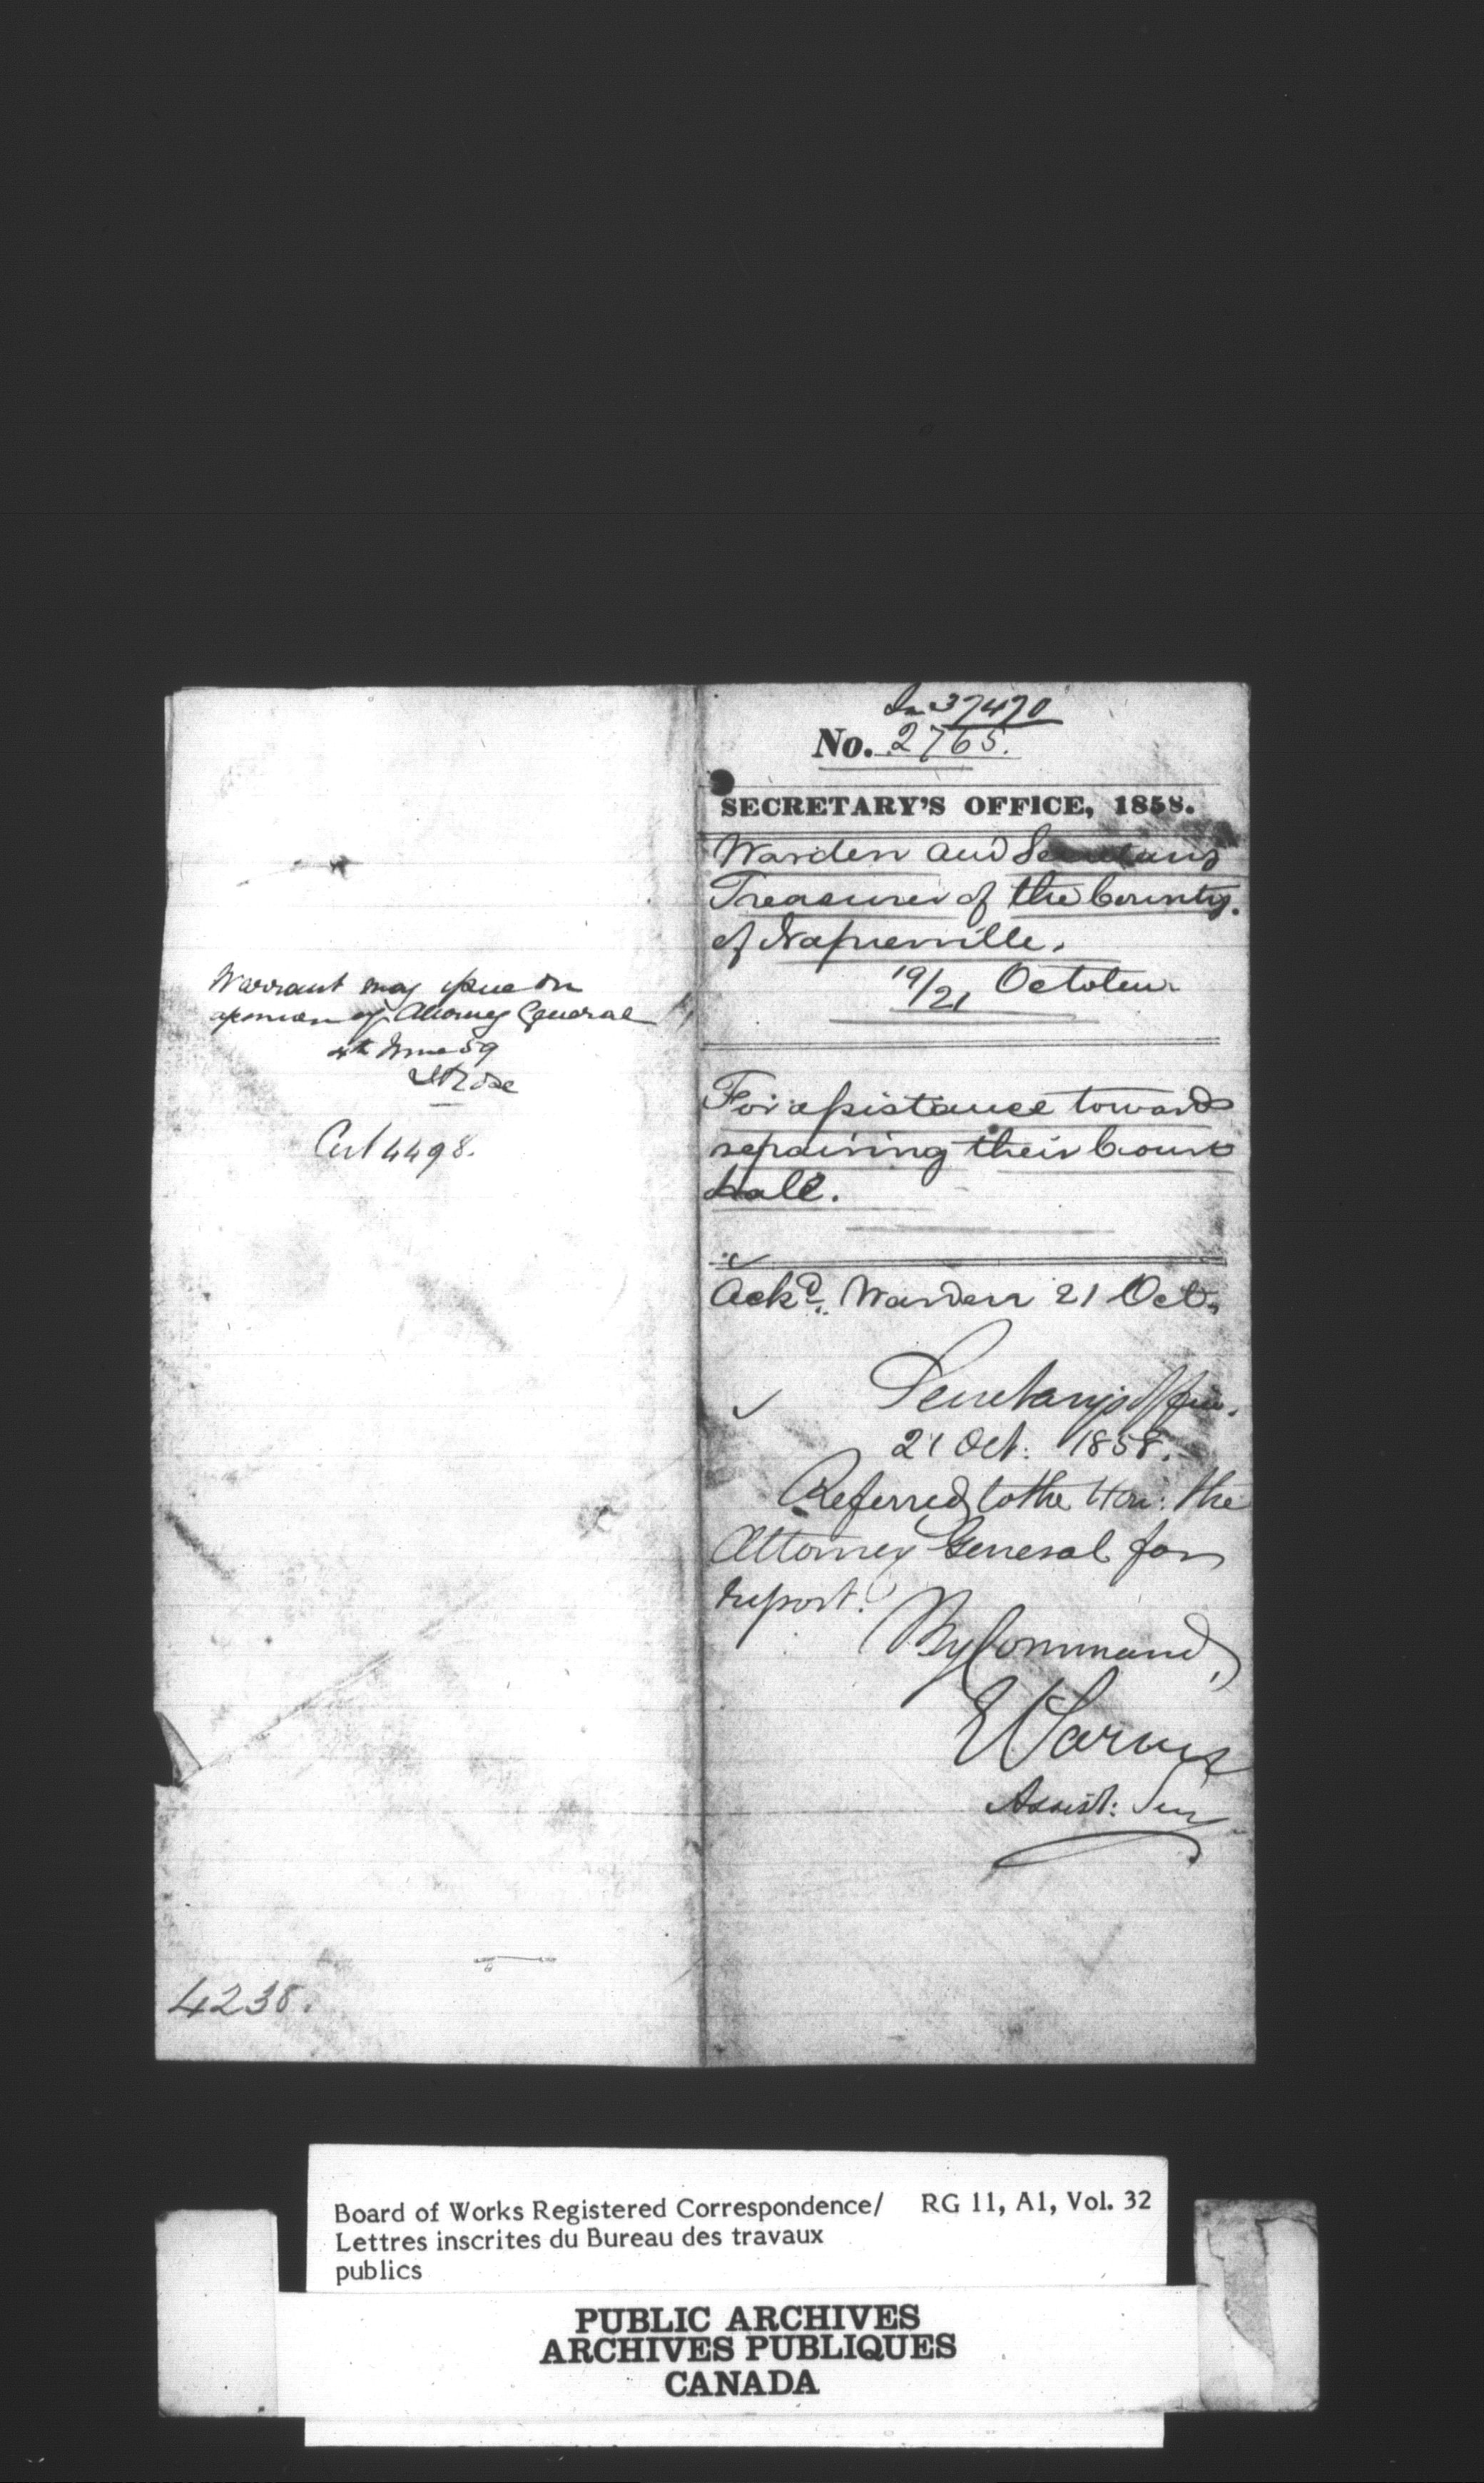 Warrant may issue on
opinion of Attorney General
4th June 59
J Rose
Cert 4498.
4238.
In 37470
No. 2765.
SECRETARY'S OFFICE, 1858.
Warden and Secretary
Treasurer of the County
of Napierville.
19/21 October
For assistance towards
repairing their Court
hall.
Ackd. Warden 21 Oct.
Secretary's Office.
21 Oct: 1858.
Referred to the Hon: the
Attorney General for
report.
By Command,
Assist: Secy
Board of Works Registered Correspondence/ RG 11, A1, Vol. 32
Lettres inscrites du Bureau des travaux
publics
PUBLIC ARCHIVES
ARCHIVES PUBLIQUES
CANADA